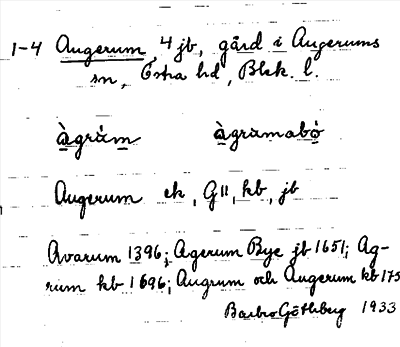 1-4 Augerum, 4 jb, gård i Augerums
sn, Östra hd, Blek. l.
àgrúm àgrumabó
Augerum ek, G11, kb, jb
Avarum 1396; Agerum Bye jb 1651; Ag-
rum kb 1696; Augrum och Augerum kb 175
Barbro Götlberg 1933